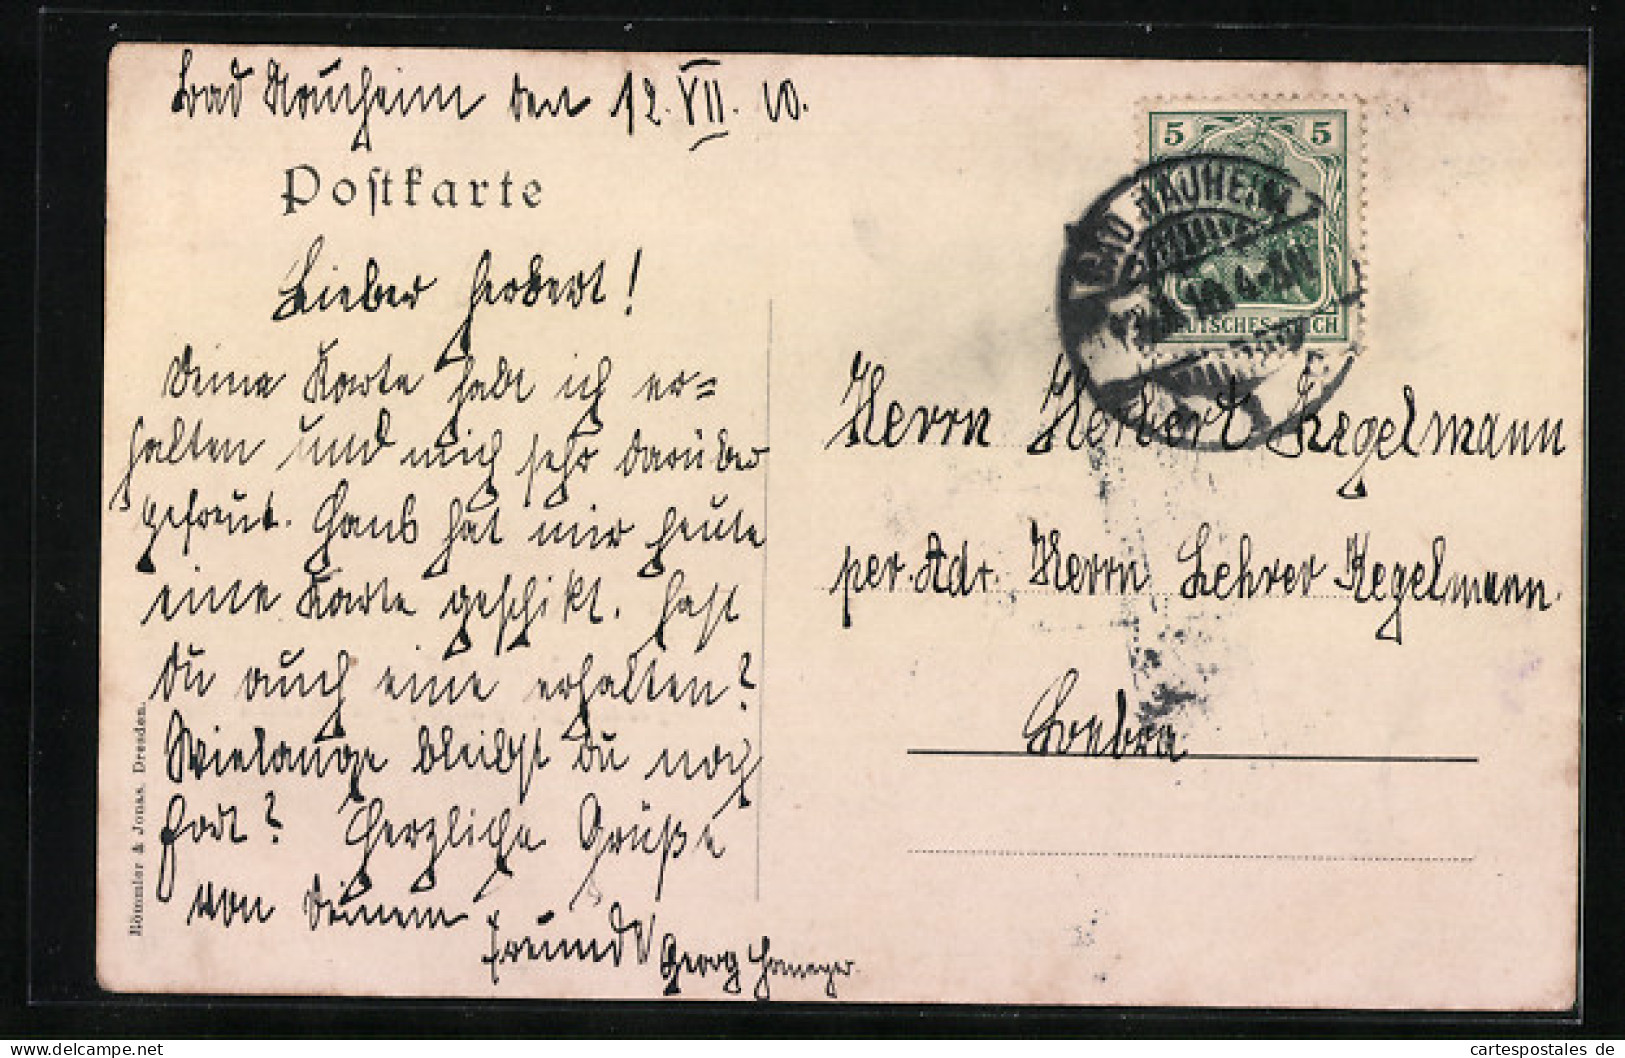 Bad Nauheim den 12. VII. 10.
Postkarte
Lieber Herbert!
Deine Karte habe ich er=
halten und mich sehr darüber
gefreut. Hans hat mir heute
eine Karte geschikt. Hast
du auch eine erhalten?
Wielange bleibst du noch
fort? Herzliche Grüße
von Deinem
Freunde Georg
Römmler & Jonas, Dresden.
5 5
DEUTSCHES REICH
BAD NAUHEIM
Herrn Herbert Kegelmann
per. Adr. Herrn Lehrer Kegelmann.
cartespostales de